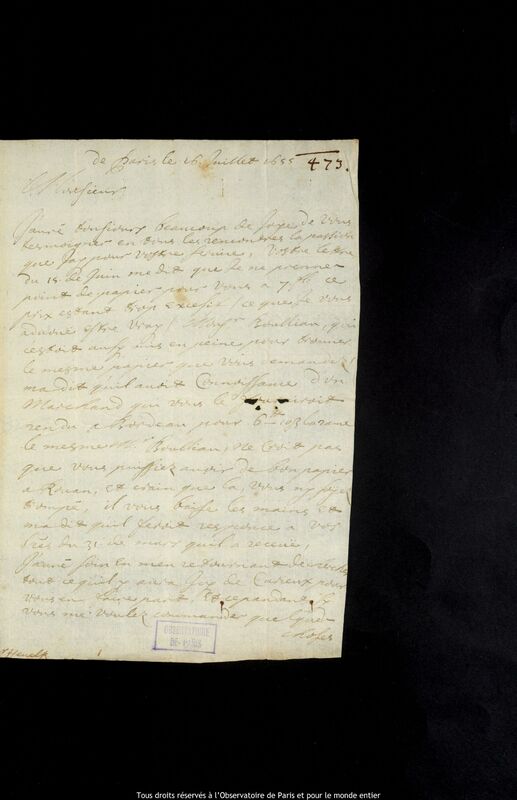 de Paris le 16. Juillet 1655
473.
Monsieur
J'auré tousiours beaucoup de joye de vous
tesmoigner en tous les rencontres la passion
que jay pour vostre service, Vostre lettre
du 18 de Juin me dit que Je ne prenne
point de papier pour vous a 7 ce
prix estant trop excesif, ce que Je vous
advoue estre vray, Monsr Boulliau, qui
cestoit aussy mis en peine pour trouver
le mesme papier que vous demandez
ma dit quil avoit Connoissance d'un
Marchand qui vous le
rendu a Bordeau pour 6
le mesme Mr Boulliau, ne Croit pas
que vous puissiez avoir de bon papier
a Rouan, et crain que la, vous ny soyez
trompé, il vous baise les mains et
ma dit quil feroit responce a vos
du 31 de mars quil a receue,
J'auré soin en men retournant de
tout ce quil y aura de Curieux pour
vous en faire part, Et cependant, si
vous me voulez commander que lque
choses
OBSERVATOIRE
DE PARIS
Tous droits réservés à l'Observatoire de Paris et pour le monde entier